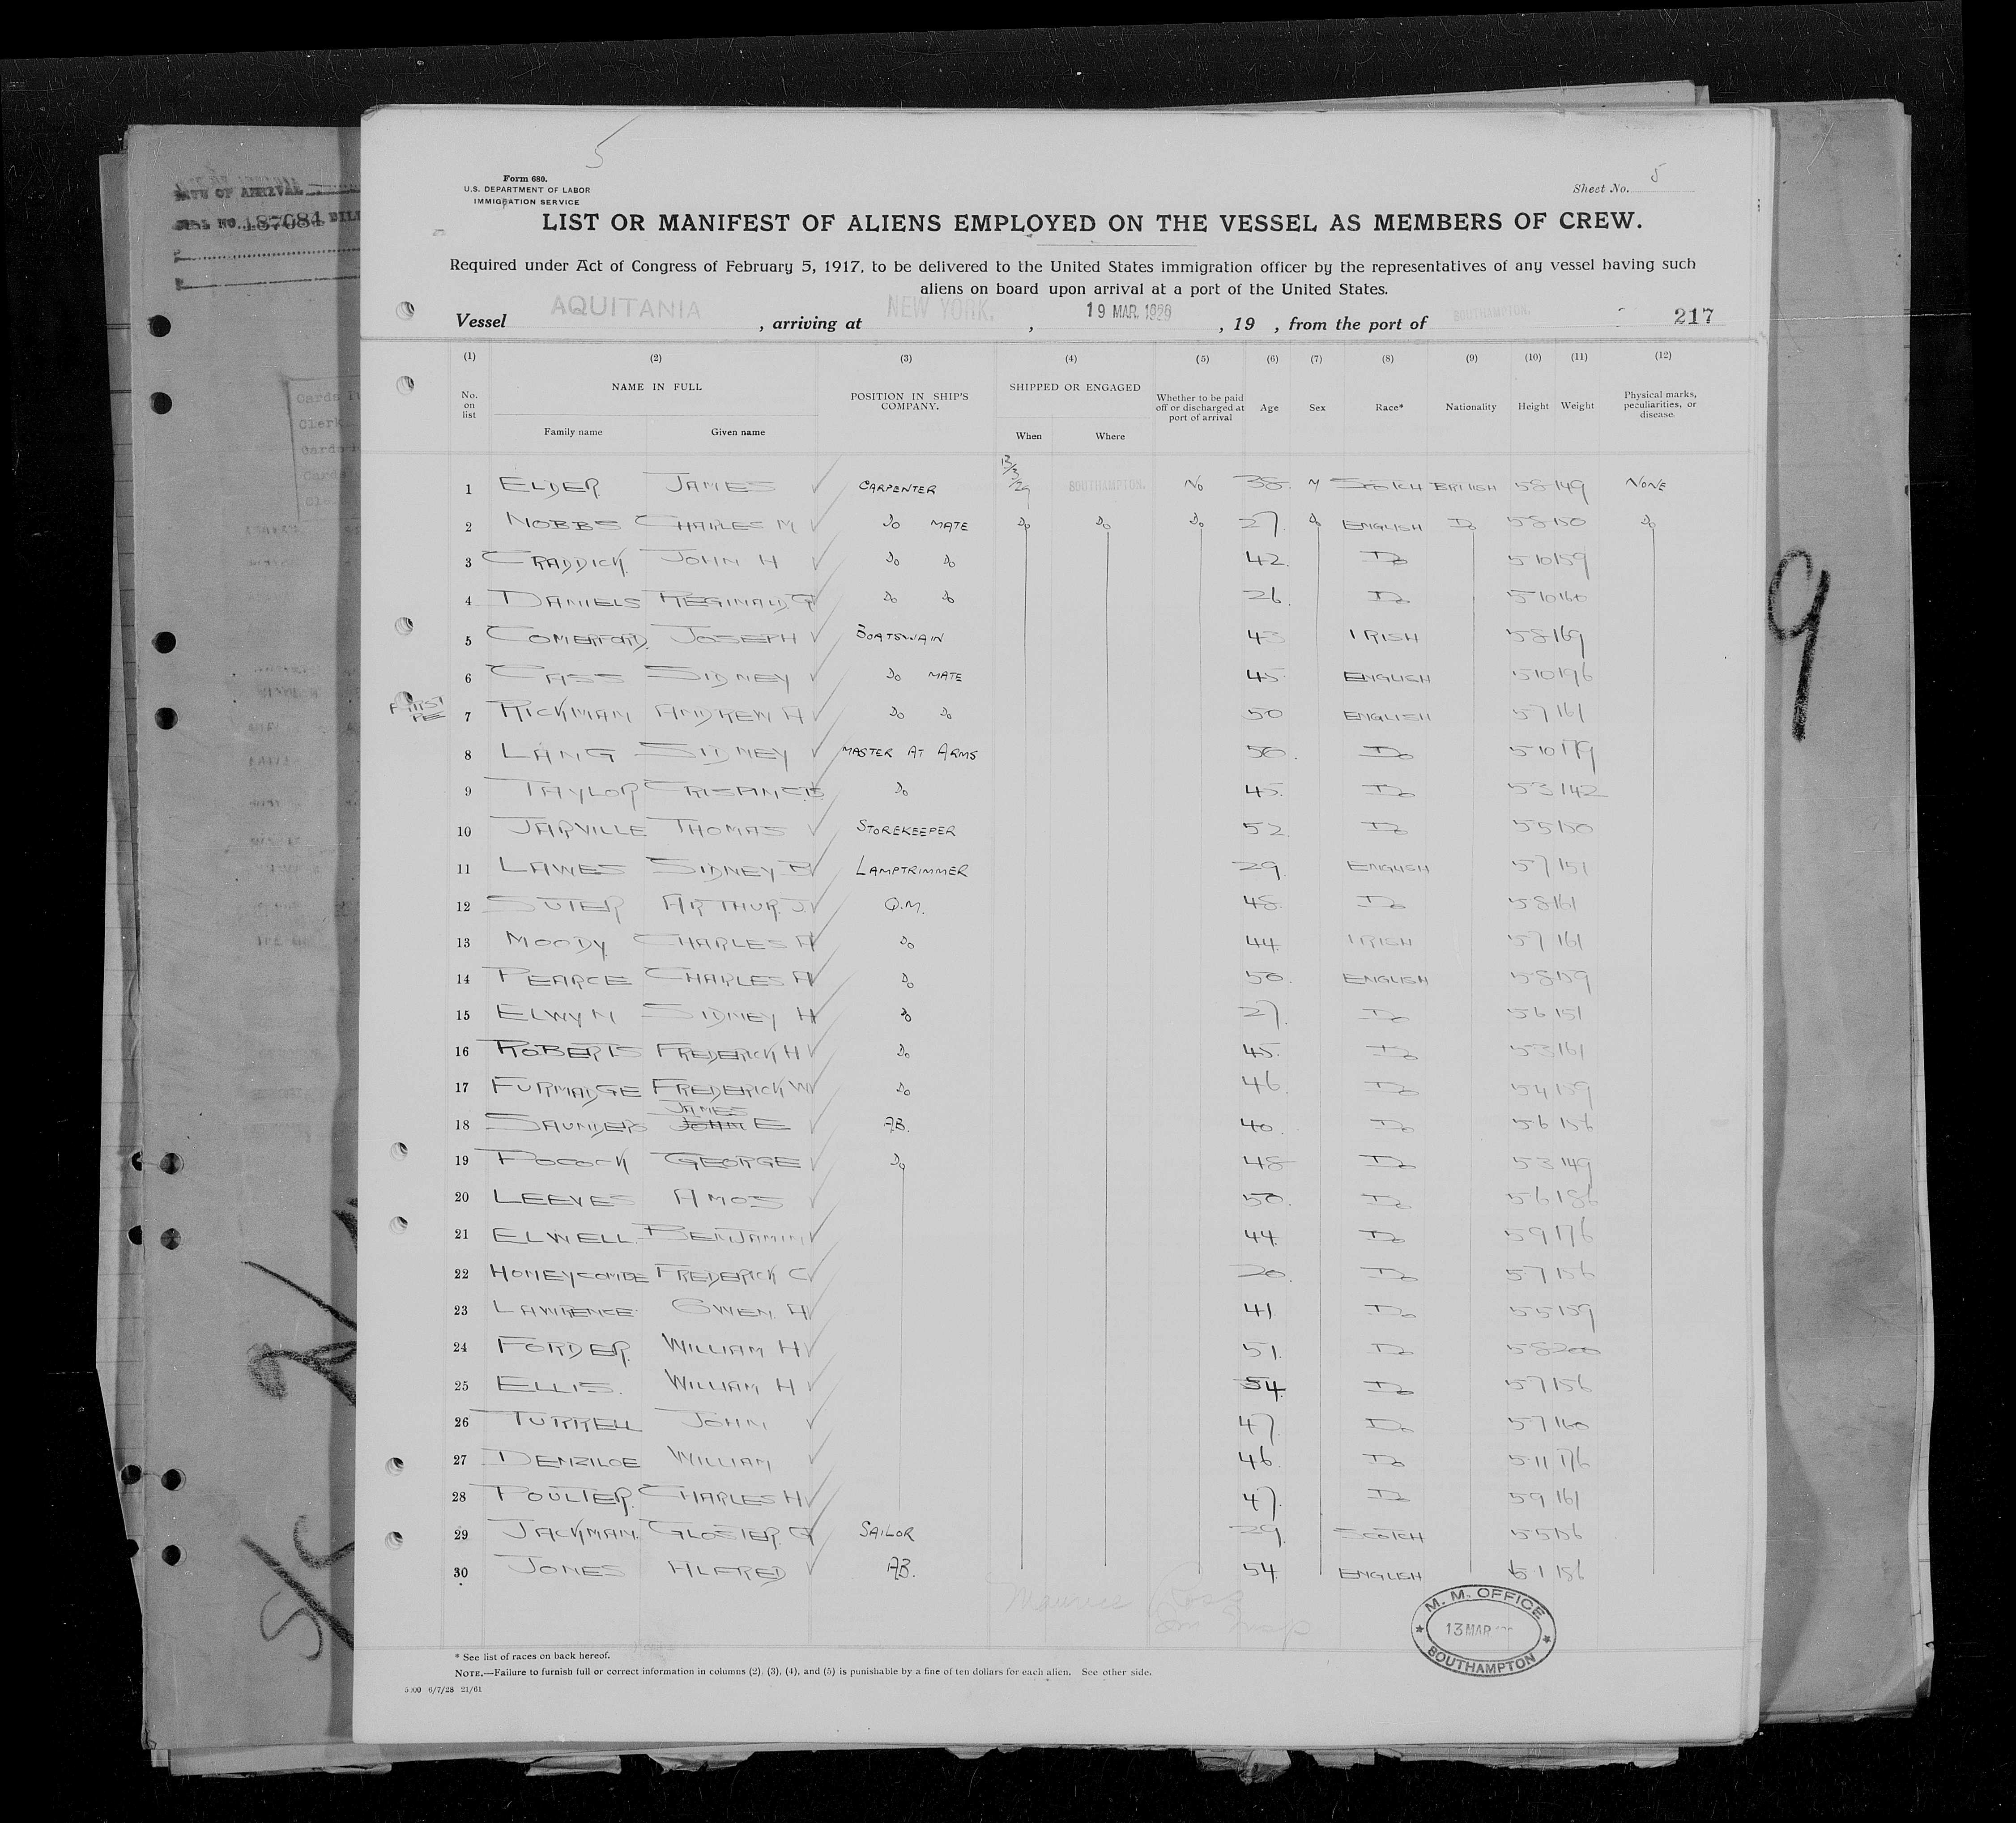 5
Form 680.
U.S. DEPARTMENT OF LABOR
IMMIGRATION SERVICE
Sheet No. 5
LIST OR MANIFEST OF ALIENS EMPLOYED ON THE VESSEL AS MEMBERS OF CREW.
Required under Act of Congress of February 5, 1917, to be delivered to the United States immigration officer by the representatives of any vessel having such
aliens on board upon arrival at a port of the United States.
Vessel AQUITANIA, arriving at NEW YORK., 19 MAR. 1929, 19 , from the port of SOUTHAMPTON. 217
(1) (2) (3) (4) (5) (6) (7) (8) (9) (10) (11) (12)
No. on list NAME IN FULL Family name Given name POSITION IN SHIP'S COMPANY. SHIPPED OR ENGAGED When Where Whether to be paid off or discharged at port of arrival Age Sex Race* Nationality Height Weight Physical marks, peculiarities, or disease.
1 ELDER JAMES CARPENTER 13/3/29 SOUTHAMPTON. No 38. M SCOTCH BRITISH 5 8 149 NONE
2 NOBBS CHARLES M Do MATE Do Do Do 27. Do ENGLISH Do 5 8 150 Do
3 CRADDICK. JOHN H Do Do 42. Do 5 10 159
4 DANIELS REGINALD. G Do Do 26. Do 5 10 160
5 COMERFORD. JOSEPH BOATSWAIN 43 IRISH 5 8 169
6 CASS SIDNEY Do MATE 45. ENGLISH 5 10 196
7 RICKMAN ANDREW A Do Do 50 ENGLISH 5 7 161
8 LANG SIDNEY MASTER AT ARMS 50. Do 5 10 179
9 TAYLOR Do 45. Do 5 3 142
10 JARVILLE THOMAS STOREKEEPER 52. Do 5 5 150
11 LAWES SIDNEY B LAMPTRIMMER 29. ENGLISH 5 7 151
12 SUTER ARTHUR. J. Q.M. 48. Do 5 8 161
13 MOODY. CHARLES A Do 44. IRISH 5 7 161
14 PEARCE CHARLES A Do 50. ENGLISH 5 8 159
15 ELWYN SIDNEY H Do 27. Do 5 6 151
16 ROBERTS FREDERICK H Do 45. Do 5 3 161
17 FURMADGE FREDERICK W Do 46. Do 5 4 159
JAMES
18 SAUNDERS JOHN E AB. 40. Do 5 6 156
19 POCOCK GEORGE Do 48 Do 5 3 149
20 LEEVES AMOS 50. Do 5 6 186
21 ELWELL. BENJAMIN 44. Do 5 9 176
22 HONEYCOMBE FREDERICK C 20. Do 5 7 156
23 LAWRENCE OWEN. H 41 Do 5 5 159
24 FORDER. WILLIAM H 51. Do 5 8 200
25 ELLIS. WILLIAM H 54. Do 5 7 156
26 TURRELL JOHN 47. Do 5 7 160
27 DENZILOE WILLIAM 46. Do 5 11 176
28 POULTER. CHARLES H 47. Do 5 9 161
29 JACKMAN. GLOSTER. G SAILOR 29. SCOTCH 5 5 156
30 JONES ALFRED AB. 54. ENGLISH 6 1 186
M. M. OFFICE
13 MAR
SOUTHAMPTON
* See list of races on back hereof.
NOTE.—Failure to furnish full or correct information in columns (2), (3), (4), and (5) is punishable by a fine of ten dollars for each alien. See other side.
5000 6/7/28 21/61
NO. 187084
9